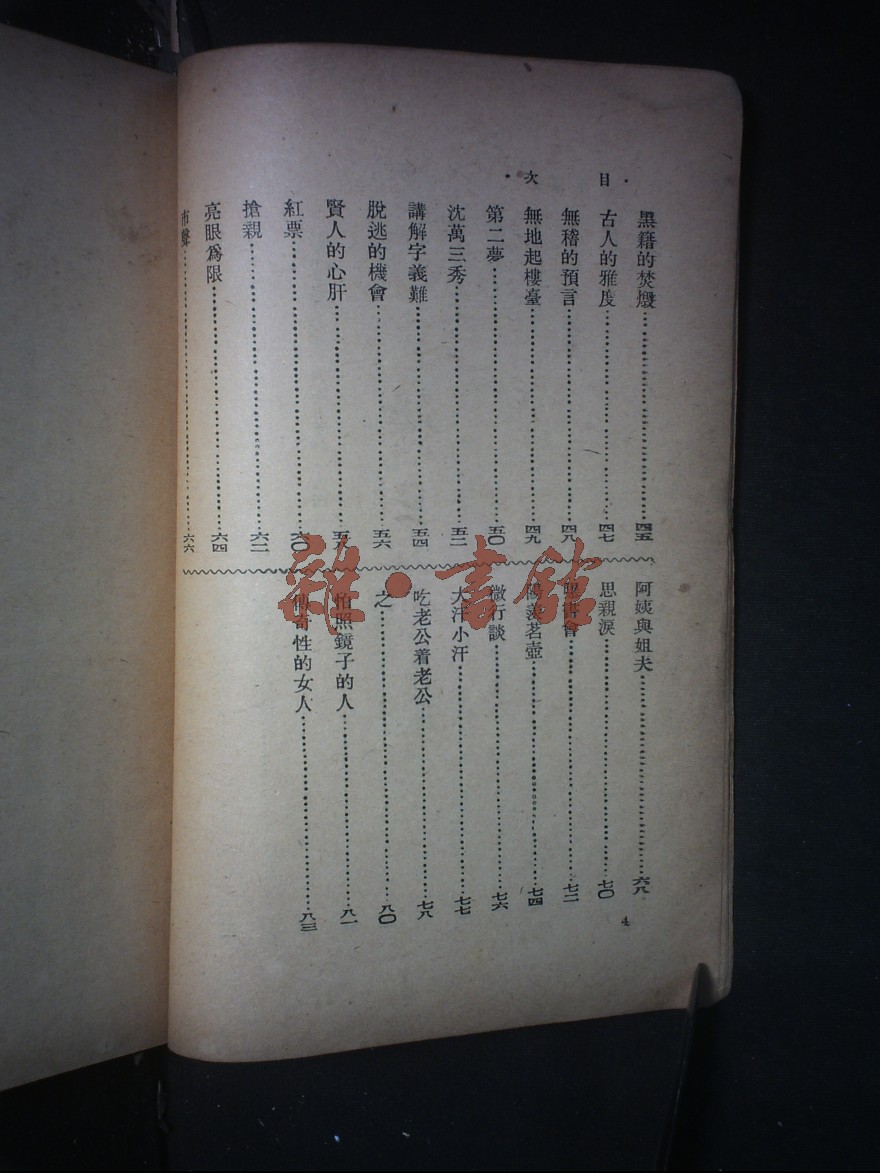 ·目次·
黑籍的焚燬……四五
古人的雅度……四七
無稽的預言……四八
無地起樓臺……四九
第二夢……五〇
沈萬三秀……五二
講解字義難……五四
脫逃的機會……五六
賢人的心肝……五八
紅票……六〇
搶親……六二
亮眼為限……六四
市聲……六六
阿姨與姐夫……六八
思親淚……七〇
書會……七二
陽羨茗壺……七四
微行談……七六
大汗小汗……七七
吃老公着老公……七八
之……八〇
怕照鏡子的人……八一
傳奇性的女人……八三
4
雜·書館